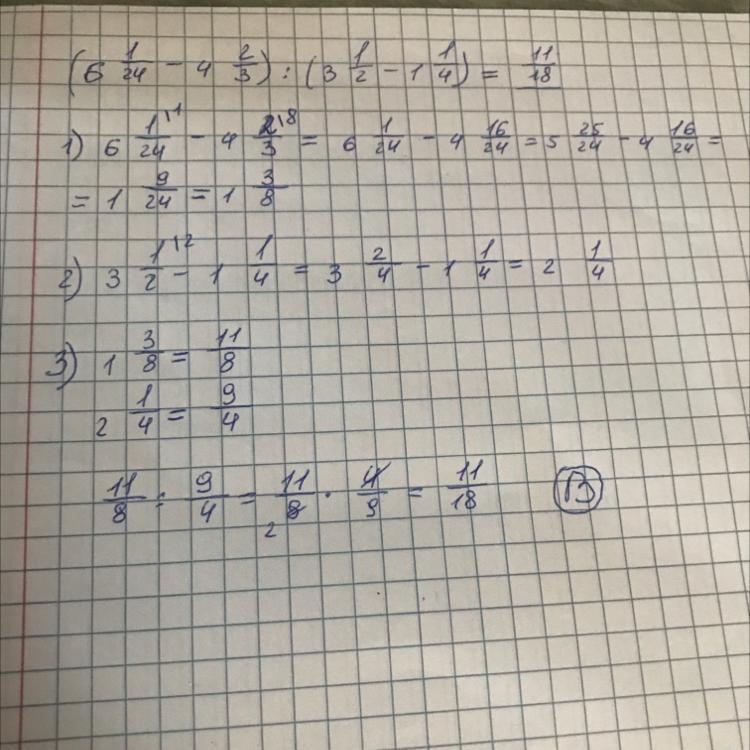 (6 1/24 - 4 2/3) : (3 1/2 - 1 1/4) = 11/18
1) 6 1/24 \1 - 4 2/3 \8 = 6 1/24 - 4 16/24 = 5 25/24 - 4 16/24 =
= 1 9/24 = 1 3/8
2) 3 1/2 \2 - 1 1/4 = 3 2/4 - 1 1/4 = 2 1/4
3) 1 3/8 = 11/8
2 1/4 = 9/4
11/8 : 9/4 = 11/8 2 · 4/9 = 11/18